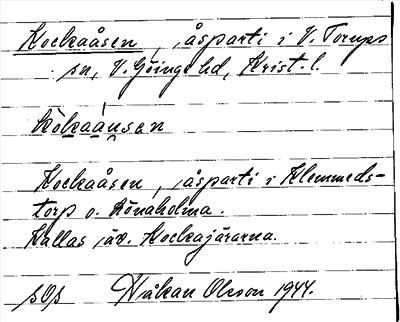 Kockaåsen, åsparti i V. Torups
sn, V. Göinge hd, Krist. l.
kòkaånsen
Kockaåsen, åsparti i Klemmeds-
torp o. Rönaholma.
Kallas äv. Kockajärarna.
Håkan Olsson 1944.